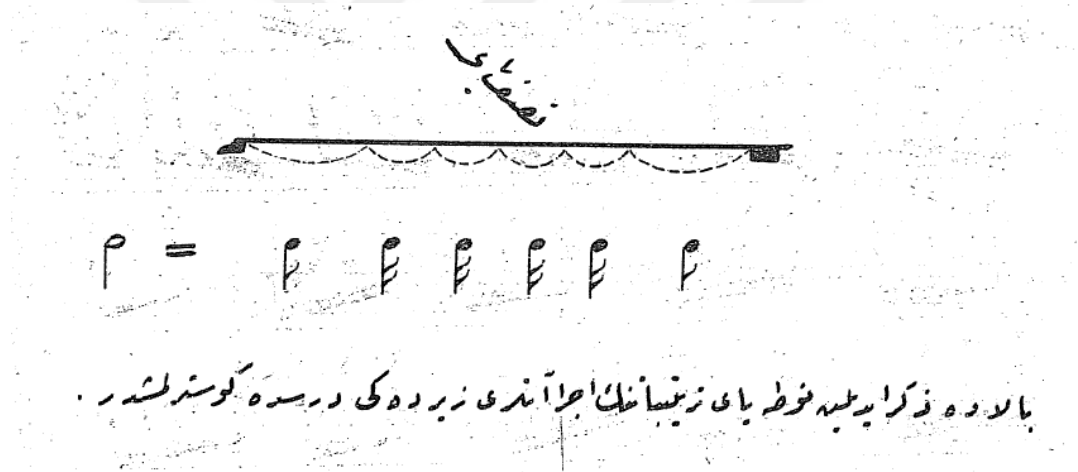 نصف یای
بالاده ذکر ایدیلین نوطه یای تزییناتنك اجراآتلری زیرده کی درسده کوستر لمشدر .